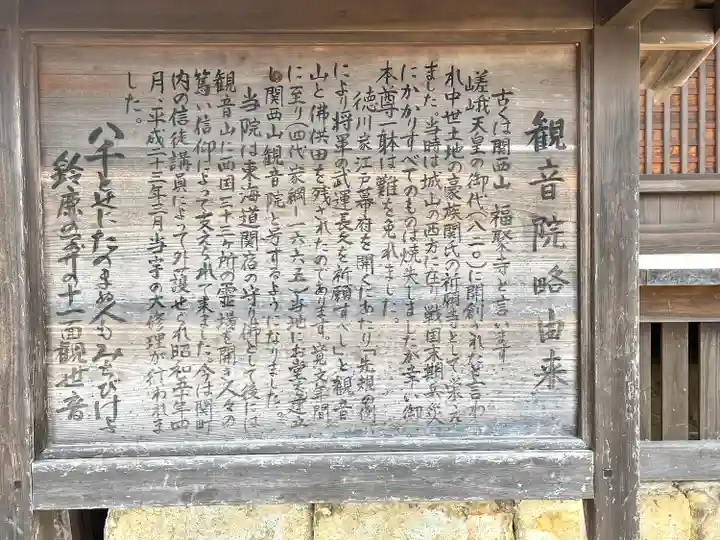 観音院略由来
古くは関西山 福聚寺と言います
嵯峨天皇の御代(八一〇)に開創されたと言わ
れ中世土地の豪族関氏の祈願寺として栄え
ました 当時は城山の西方に在り 戦国末期兵火
にかかりすべてのものは焼失しましたが幸い御
本尊一躰は難を免れました。
徳川家江戸幕府を開くにあたり「先規の例
により将軍の武運長久を祈願すべし」と観音
山と佛供田を残されたのであります。寛文年間
に至り(四代家綱ー一六六五)当地にお堂を建立
し関西山観音院と号するようになりました。
当院は東海道関宿の守り佛として後には
観音山に西国三十三ヶ所の霊場を開き人々の
篤い信仰によって支えられて来ました、今は関町
内の信徒講員によって外護せられ昭和五十年四
月、平成二十三年三月 当字の大修理が行われま
した。
八千とせにたつまぬ人もみちびけよ
鈴原の奔の十一面観世音